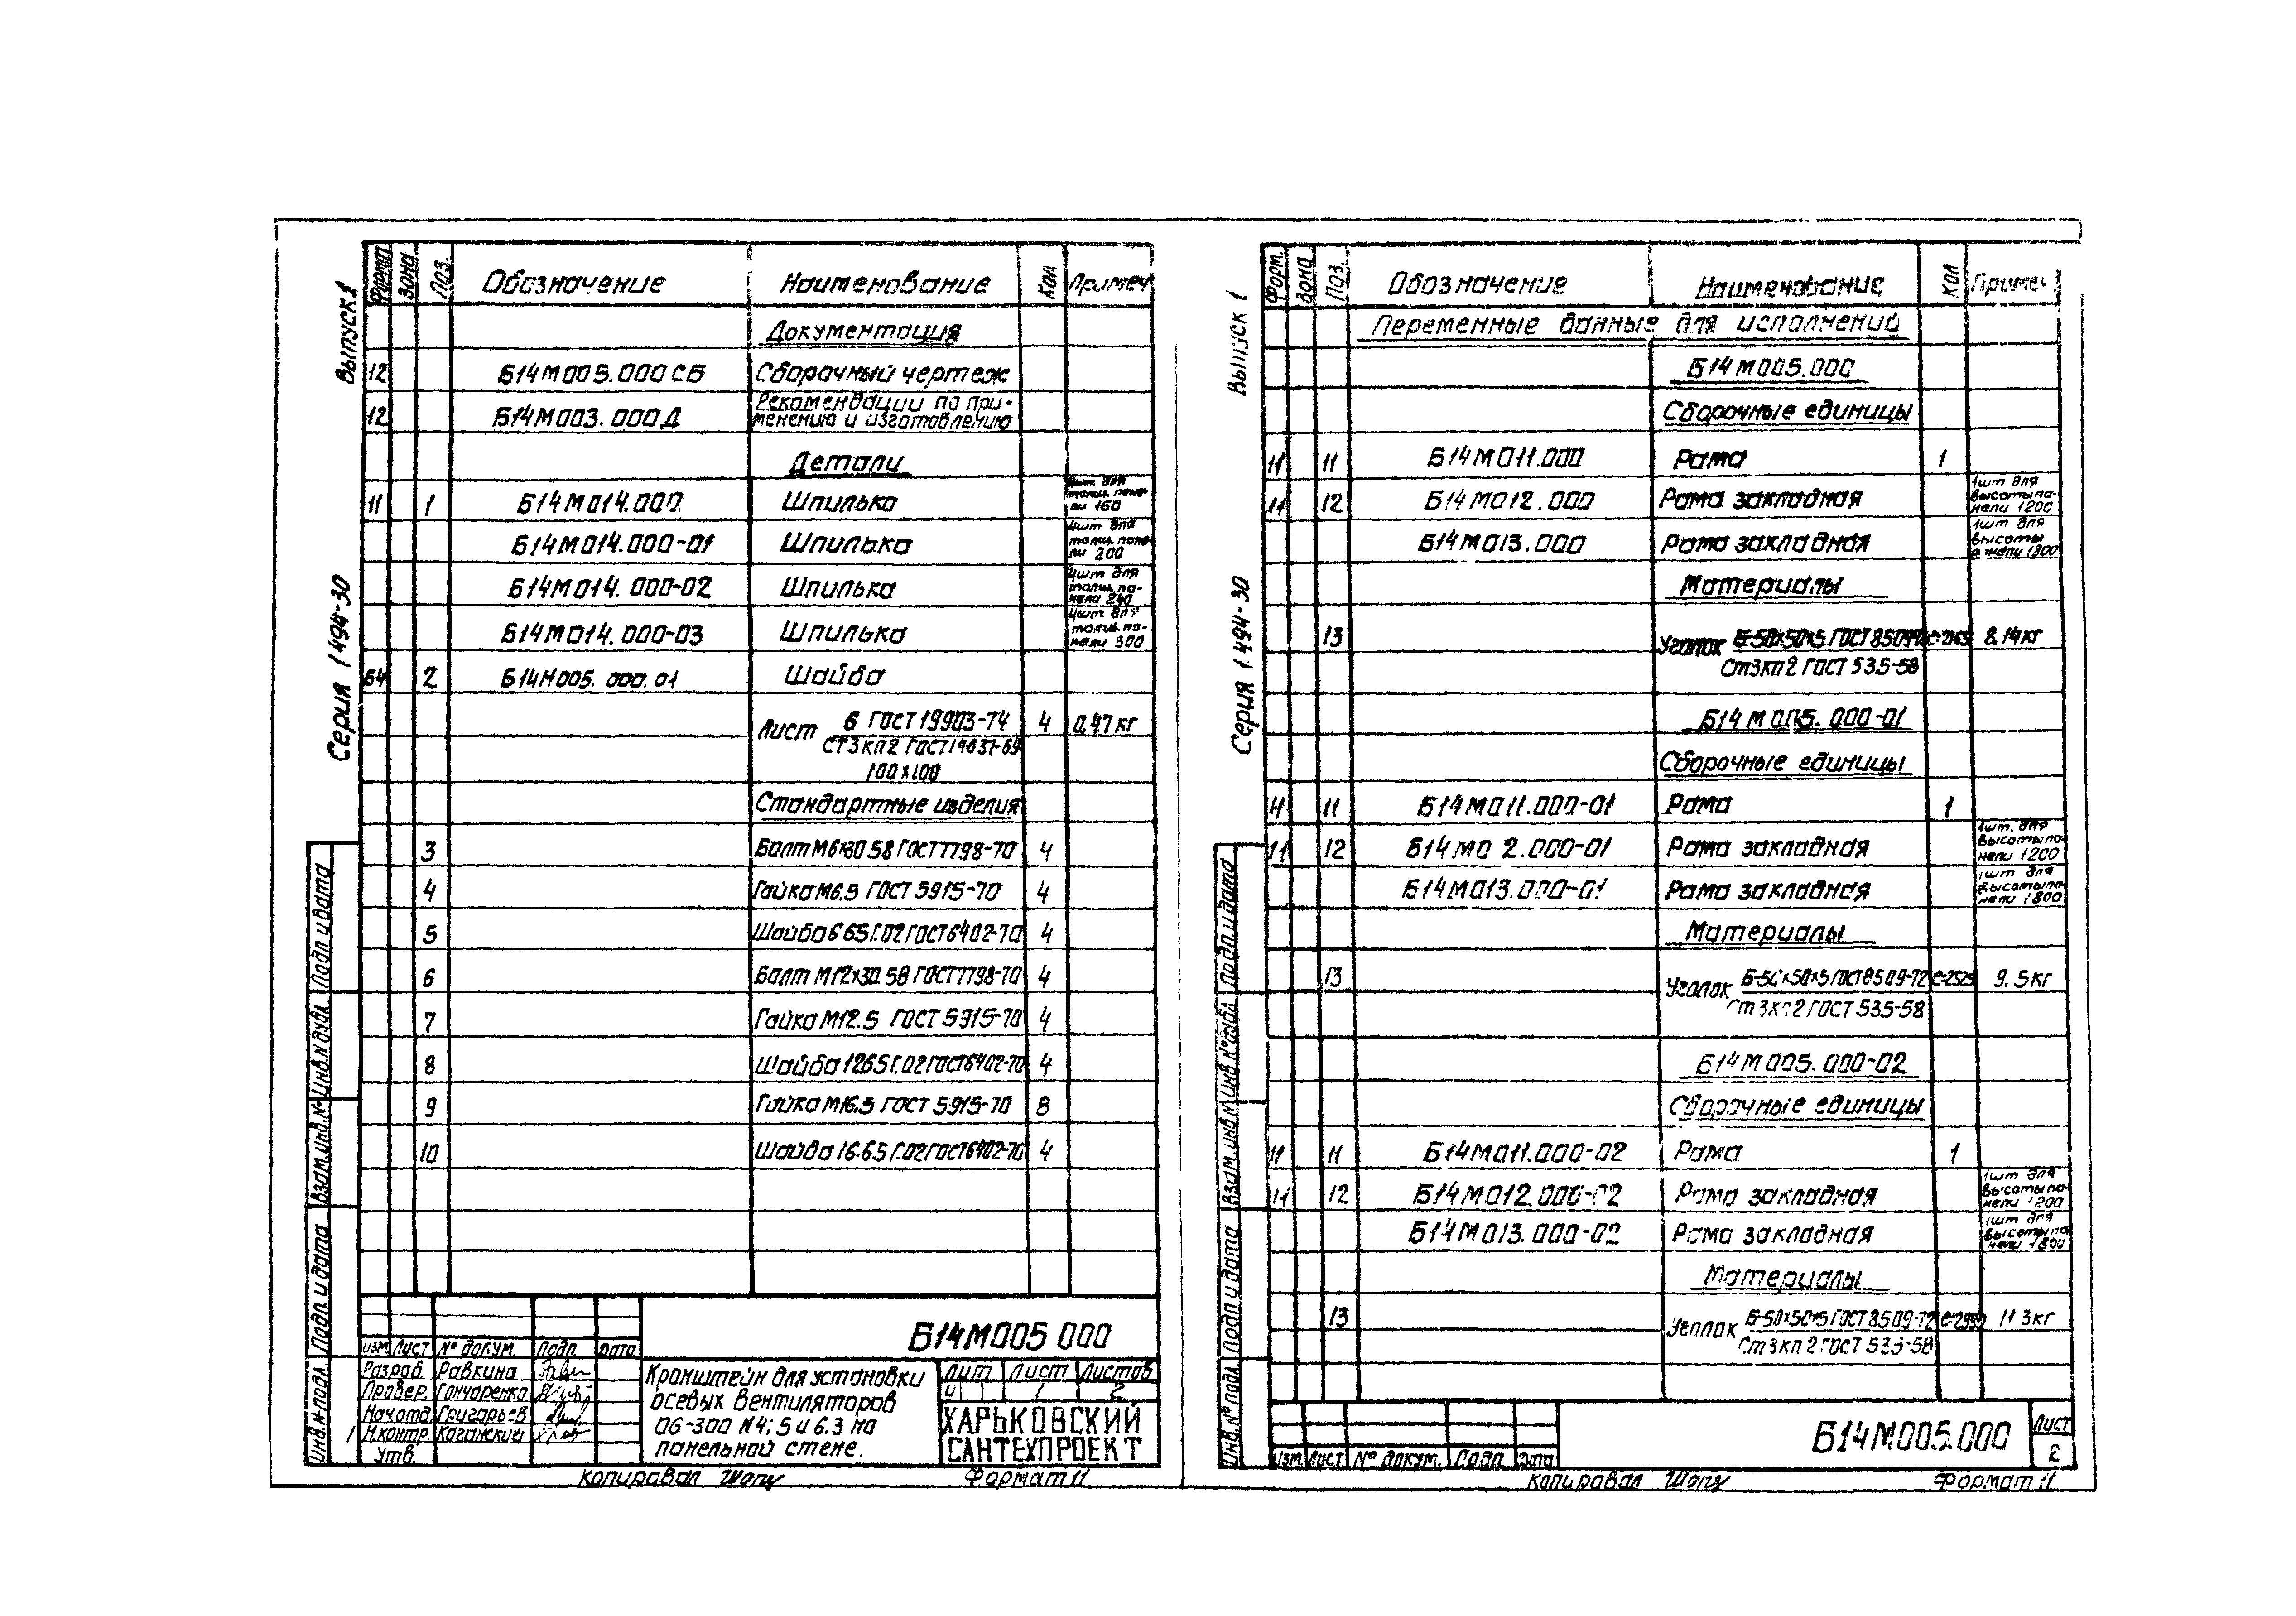 Выпуск 1
Серия 1.494-30
Форм. Зона Поз. Обозначение Наименование Кол Примеч
Документация
12 Б14М005.000 СБ Сборочный чертеж
12 Б14М003.000Д Рекомендации по при-
менению и изготовлению
Детали
11 1 Б14М014.000 Шпилька 4шт. для
толщ. пане-
ли 160
Б14М014.000-01 Шпилька 4шт для
толщ. пане-
ли 200
Б14М014.000-02 Шпилька 4шт для
толщ. па-
нели 240
Б14М014.000-03 Шпилька 4шт. для
толщ. па-
нели 300
Б4 2 Б14М005.000.01 Шайба
Лист 6 ГОСТ 19903-74 4 0,47кг
Ст3кп2 ГОСТ14637-69
100х100
Стандартные изделия
3 Болт М6х30.58 ГОСТ7798-70 4
4 Гайка М6.5 ГОСТ 5915-70 4
5 Шайба 6 65Г.02 ГОСТ6402-70 4
6 Болт М12х30.58 ГОСТ7798-70 4
7 Гайка М12.5 ГОСТ 5915-70 4
8 Шайба 12 65Г.02 ГОСТ6402-70 4
9 Гайка М16.5 ГОСТ 5915-70 8
10 Шайба 16.65Г.02 ГОСТ6402-70 4
Подп и дата
Инв.N дубл.
Взам.инв.N°
Подп. и дата
Инв.N подл.
Б14М005 000
Изм Лист N° докум. Подп Дата
Разраб. Равкина
Провер. Гончаренко
Нач.отд. Григорьев
Н.контр. Каганский
Утв.
Кронштейн для установки
осевых вентиляторов
06-300 N4; 5 и 6,3 на
панельной стене.
Лит Лист Листов
и 1 2
ХАРЬКОВСКИЙ
САНТЕХПРОЕКТ
1
Копировал Формат 11
Выпуск 1
Серия 1.494-30
Форм. Зона Поз. Обозначение Наименование Кол Примеч
Переменные данные для исполнений
Б14М005.000
Сборочные единицы
11 11 Б14М011.000 Рама 1
11 12 Б14М012.000 Рама закладная 1шт для
высоты па-
нели 1200
Б14М013.000 Рама закладная 1шт для
высоты
панели 1800
Материалы
13 Уголок Б-50х50х5 ГОСТ 8509-72 8,14кг
Ст3кп2 ГОСТ 535-58
Б14М005.000-01
Сборочные единицы
11 11 Б14М011.000-01 Рама 1
11 12 Б14М0 2.000-01 Рама закладная 1шт. для
высоты па-
нели 1200
Б14М013.000-01 Рама закладная 1шт для
высоты па-
нели 1800
Материалы
13 Уголок Б-50х50х5 ГОСТ8509-72 ℓ-2525 9.5кг
Ст3кп2 ГОСТ 535-58
Б14М005.000-02
Сборочные единицы
11 11 Б14М011.000-02 Рама 1
11 12 Б14М012.000-02 Рама закладная 1шт для
высоты па-
нели 1200
Б14М013.000-02 Рама закладная 1шт для
высоты па-
нели 1800
Материалы
13 Уголок Б-50х50х5 ГОСТ 8509-72 11 3кг
Ст3кп2 ГОСТ 535-58
Подп. и дата
Инв.N° дубл.
Взам.инв.N
Подп и дата
Инв.N° подл.
Б14М.005.000
Лист
2
Изм Лист N° докум. Подп. Дата
Копировал Формат 11